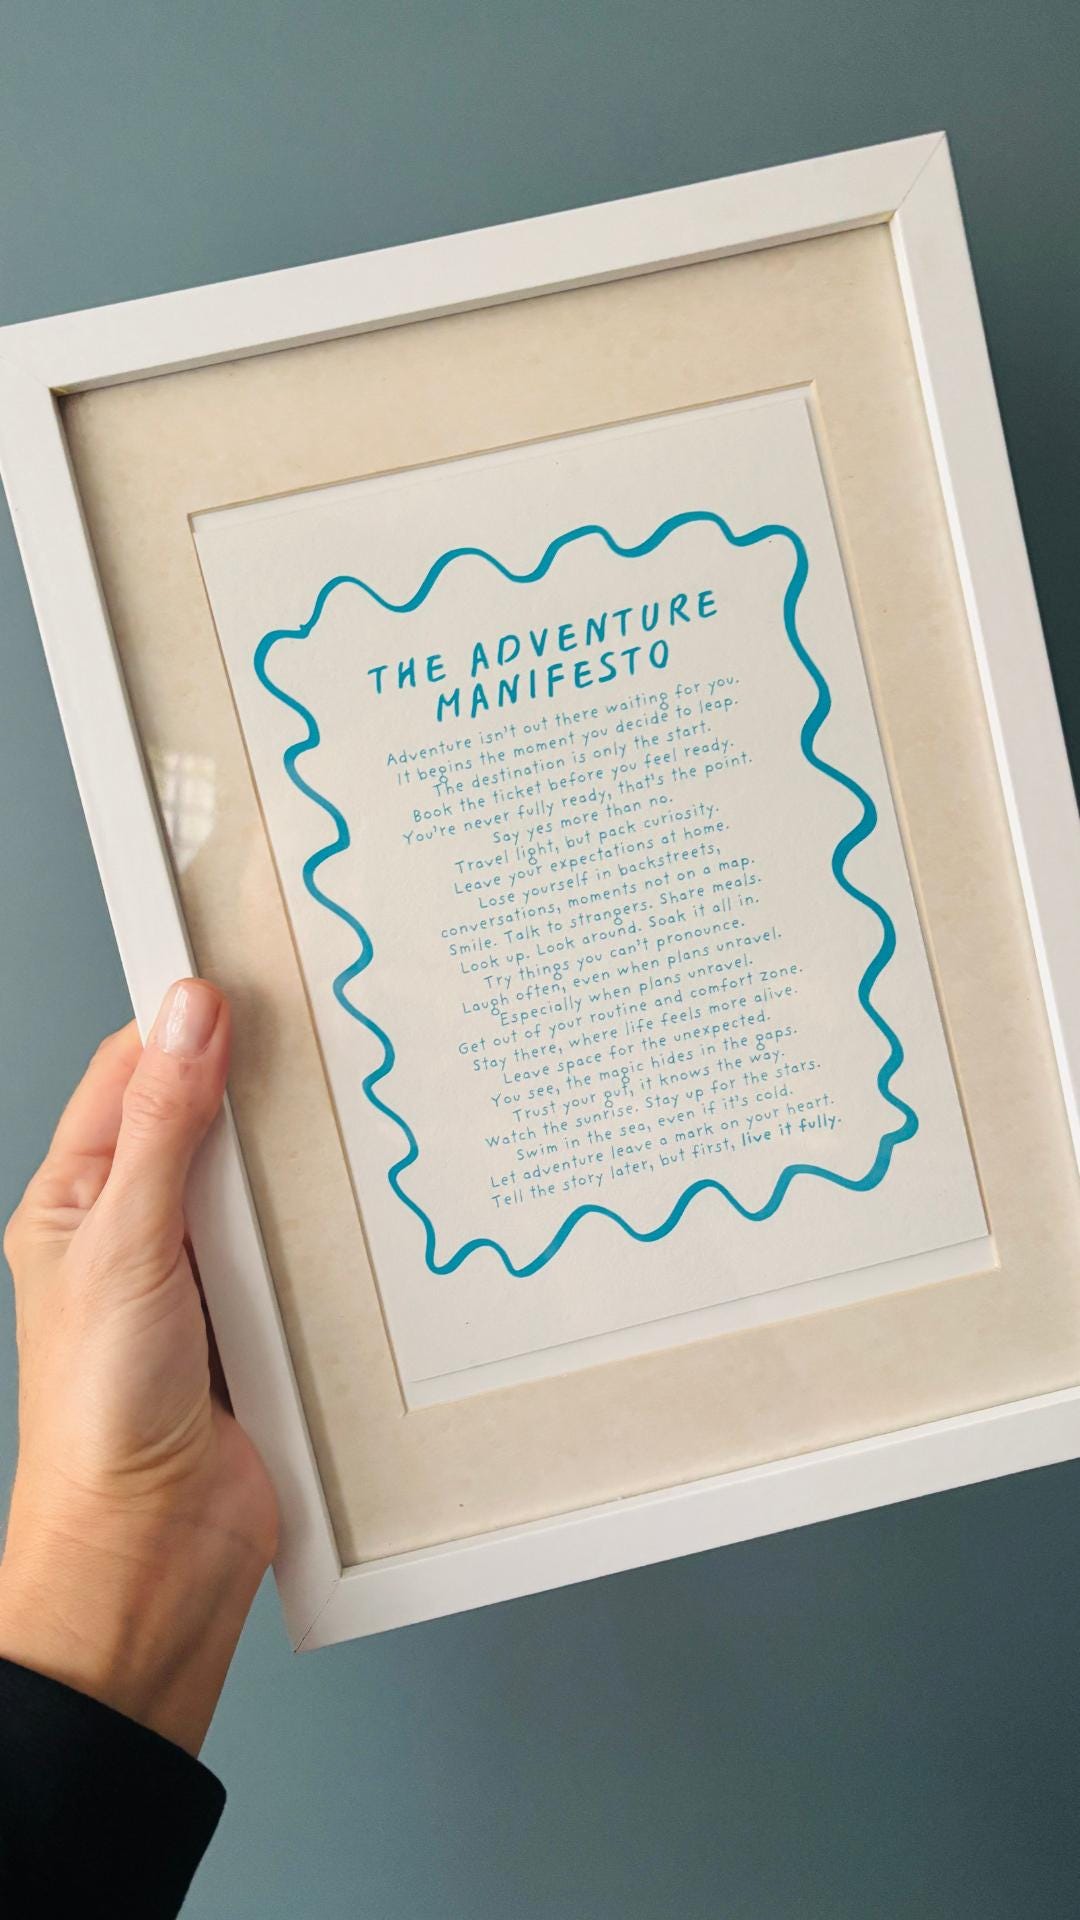 THE ADVENTURE
MANIFESTO
Adventure isn't out there waiting for you.
It begins the moment you decide to leap.
The destination is only the start.
Book the ticket before you feel ready.
You're never fully ready, that's the point.
Say yes more than no.
Travel light, but pack curiosity.
Leave your expectations at home.
Lose yourself in backstreets,
conversations, moments not on a map.
Smile. Talk to strangers. Share meals.
Look up. Look around. Soak it all in.
Try things you can't pronounce.
Laugh often, even when plans unravel.
Especially when plans unravel.
Get out of your routine and comfort zone.
Stay there, where life feels more alive.
Leave space for the unexpected.
You see, the magic hides in the gaps.
Trust your gut, it knows the way.
Watch the sunrise. Stay up for the stars.
Swim in the sea, even if it's cold.
Let adventure leave a mark on your heart.
Tell the story later, but first, live it fully.